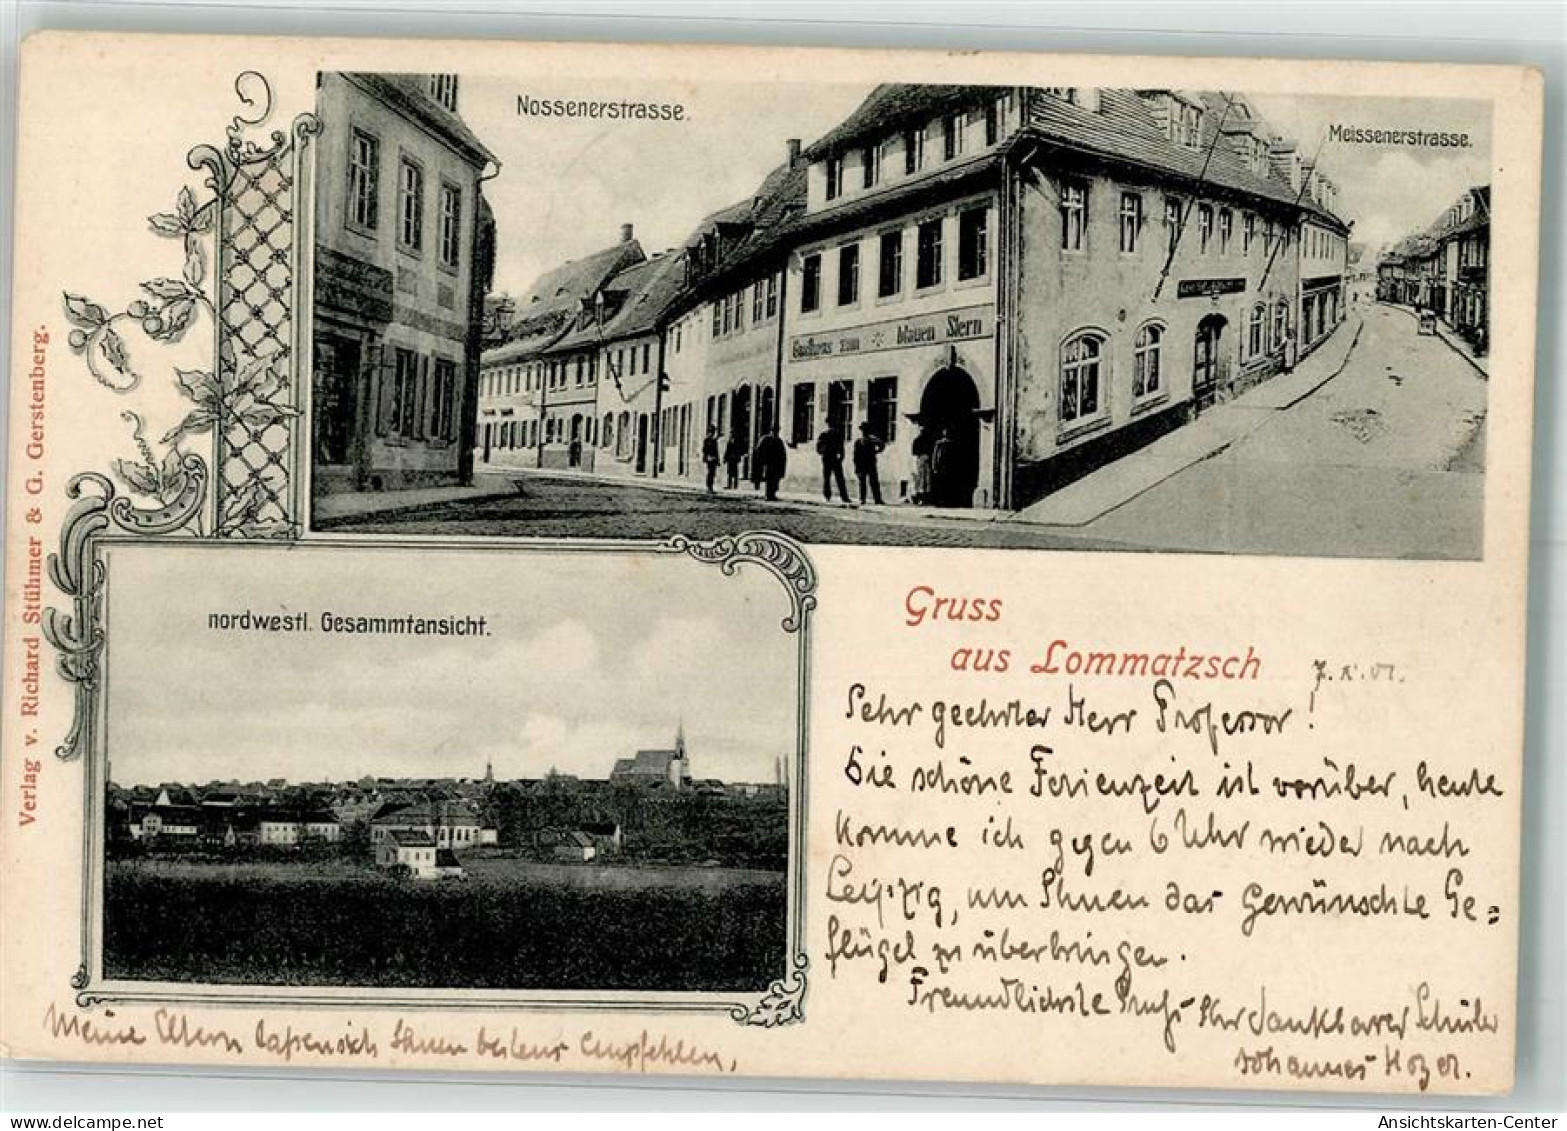 Nossenerstrasse.
Meissenerstrasse.
Gasthaus zum blauen Stern
Verlag v. Richard Stühmer & G. Gerstenberg.
nordwestl. Gesammtansicht.
Gruss
aus Lommatzsch
7. X. 01.
Sehr geehrter Herr Professor!
Die schöne Ferienzeit ist vorüber, heute
komme ich gegen 6 Uhr wieder nach
Leipzig, um Ihnen das gewünschte Ge=
flügel zu überbringen.
Freundlichste Grüße Ihr dankbarer Schüler
Johannes
Meine Eltern lassen sich Ihnen bestens empfehlen.
Ansichtskarten-Center